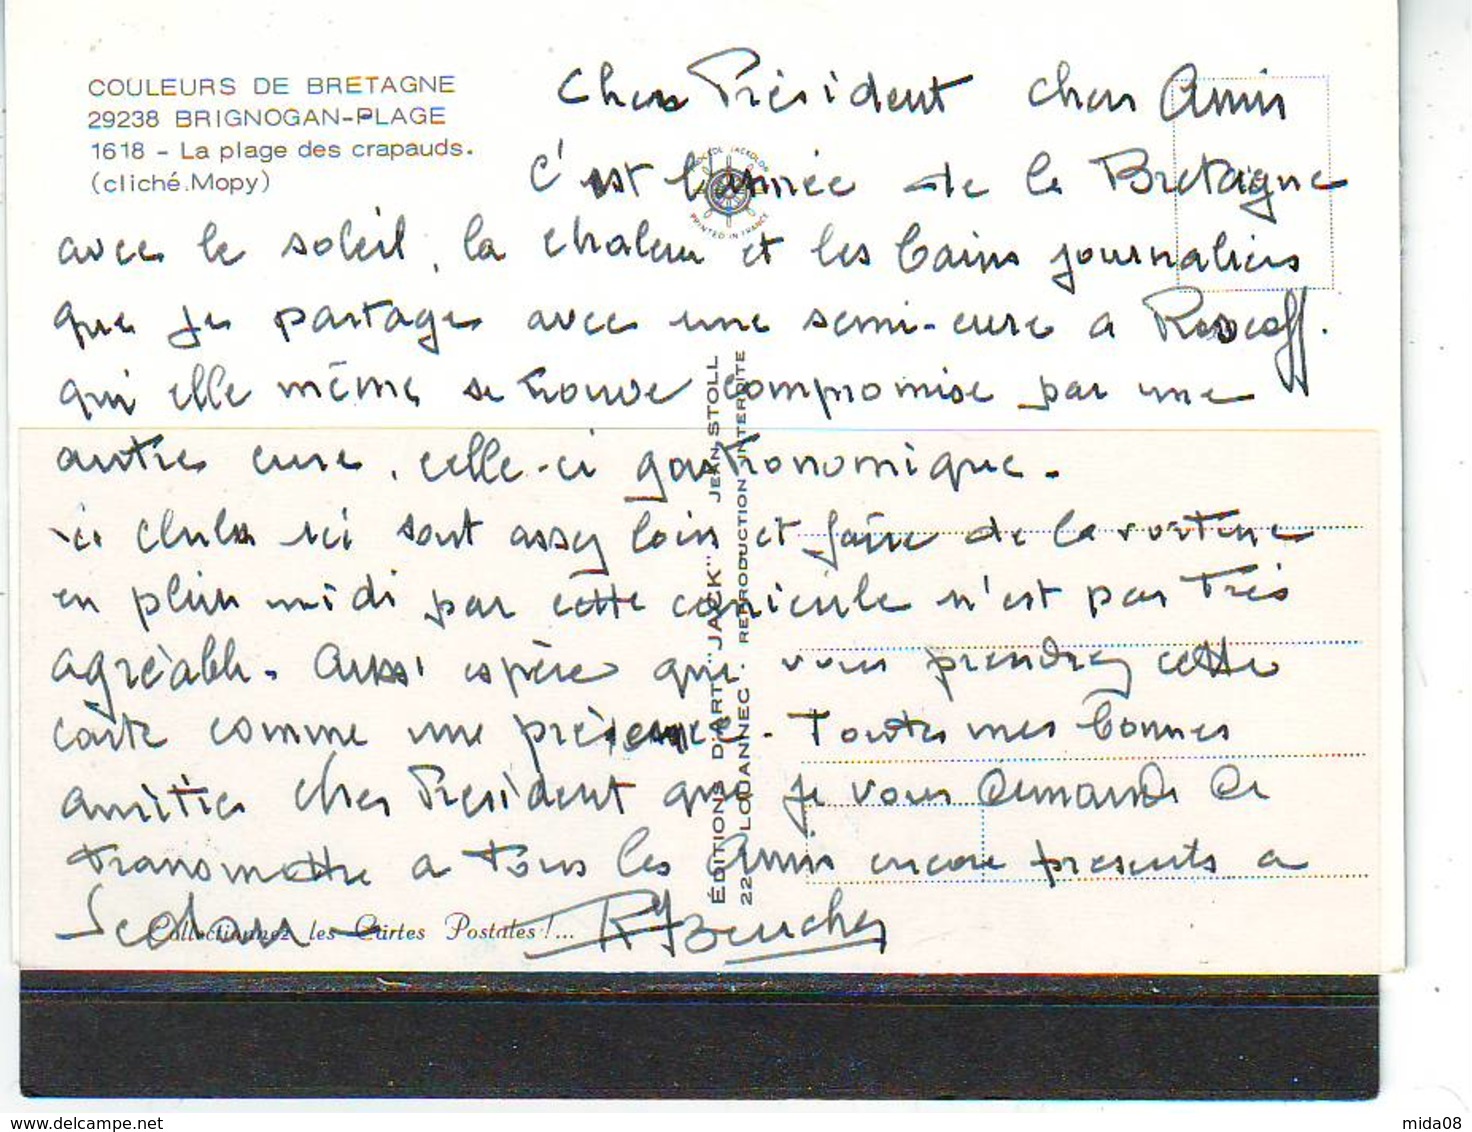 COULEURS DE BRETAGNE
29238 BRIGNOGAN-PLAGE
1618 - La plage des crapauds.
(cliché.Mopy)
Cher Président chers Amis
C'est l'année de la Bretagne
avec le soleil, la chaleur et les bains journaliers
que je partage avec une semi-cure a Roscoff.
qui elle même se trouve compromise par une
autre cure, celle-ci gastronomique.
ici sont assez loin et faire de la
en plein midi par cette canicule n'est pas très
agréable. Aussi espère que vous prendrez cette
carte comme une présence. Toutes mes bonnes
amitiés cher Président que je vous demande de
transmettre a tous les Amis encore présents a
Sedan
PRINTED IN FRANCE
ÉDITIONS D'ART "JACK" JEAN STOLL
22 LOUANNEC . REPRODUCTION INTERDITE
Collectionnez les Cartes Postales !...
mida08